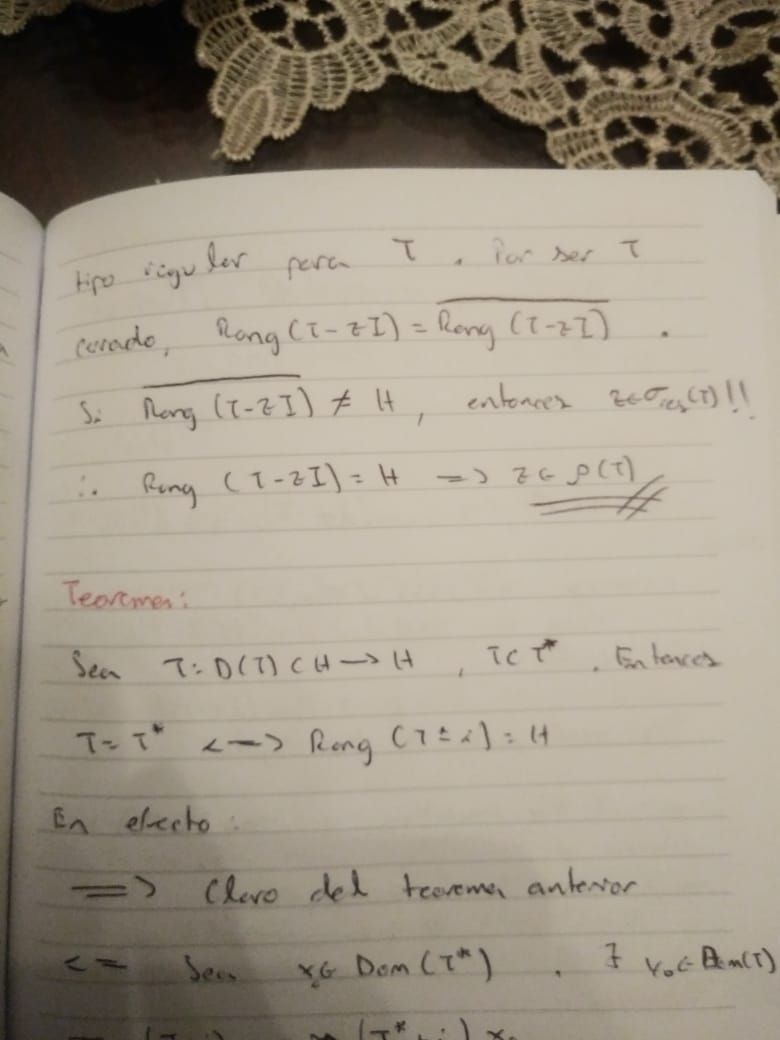 tipo regular para T . Por ser T
cerrado, Rang (T-zI) = \overline{Rang (T-zI)} .
Si \overline{Rang (T-zI)} ≠ H , entonces z∈σ_{res}(T)!!
∴ Rang (T-zI) = H => z∈ρ(T)
Teorema:
Sea T: D(T) ⊂ H → H , T⊂T* . Entonces
T = T* <=> Rang (T±i) = H
En efecto:
=> Claro del teorema anterior
<= Sea x₀∈ Dom(T*) . ∃ y₀∈ Dom(T)